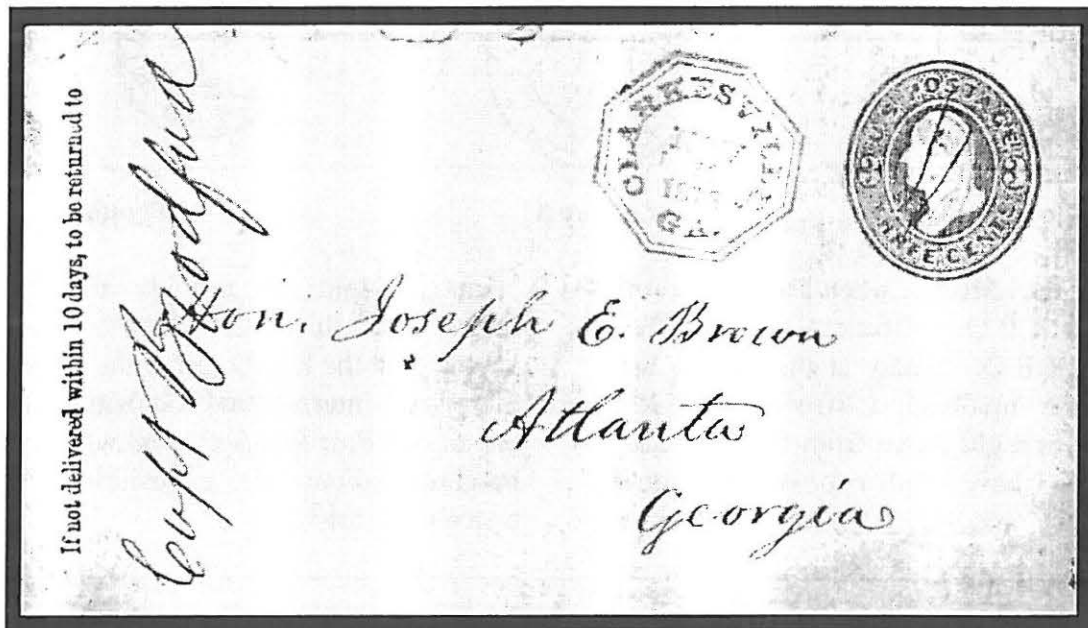 If not delivered within 10 days, to be returned to
CLARKESVILLE
GA.
U.S. POSTAGE
3 3
THREE CENTS
Hon. Joseph E. Brown
Atlanta
Georgia